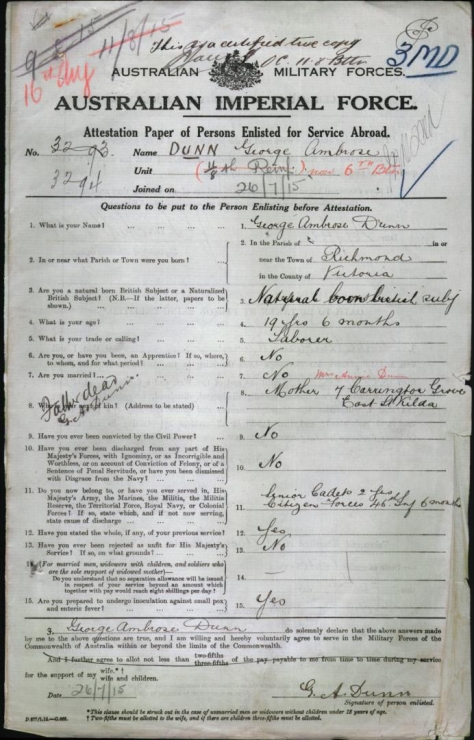 9/8/15 11/8/15
This is a certified true copy
OC
3MD
16th Aug
AUSTRALIAN MILITARY FORCES.
AUSTRALIAN IMPERIAL FORCE.
Attestation Paper of Persons Enlisted for Service Abroad.
No. 3293. Name DUNN George Ambrose
3294 Unit (4/8th Rein:) now 6TH Btn.
Joined on 26/7/15
Questions to be put to the Person Enlisting before Attestation.
1. What is your Name? 1. George Ambrose Dunn
2. In or near what Parish or Town were you born? 2. In the Parish of in or
near the Town of Richmond
in the County of Victoria
3. Are you a natural born British Subject or a Naturalized British Subject? (N.B.—If the latter, papers to be shown.) 3. Natural born British subj
4. What is your age? 4. 19 yrs 6 months
5. What is your trade or calling? 5. Laborer
6. Are you, or have you been, an Apprentice? If so, where, to whom, and for what period? 6. No
7. Are you married? 7. No
Mrs Annie Dunn
Father dead
G. A. Dunn.
8. Who is your next of kin? (Address to be stated) 8. Mother 7 Carrington Grove
East St Kilda
9. Have you ever been convicted by the Civil Power? 9. No
10. Have you ever been discharged from any part of His Majesty's Forces, with Ignominy, or as Incorrigible and Worthless, or on account of Conviction of Felony, or of a Sentence of Penal Servitude, or have you been dismissed with Disgrace from the Navy? 10. No
11. Do you now belong to, or have you ever served in, His Majesty's Army, the Marines, the Militia, the Militia Reserve, the Territorial Force, Royal Navy, or Colonial Forces? If so, state which, and if not now serving, state cause of discharge 11. Senior Cadets 2 yrs
Citizen Forces 46 Inf 6 months
12. Have you stated the whole, if any, of your previous service? 12. Yes
13. Have you ever been rejected as unfit for His Majesty's Service? If so, on what grounds? 13. No
14. (For married men, widowers with children, and soldiers who are the sole support of widowed mother)—
Do you understand that no separation allowance will be issued in respect of your service beyond an amount which together with pay would reach eight shillings per day? 14. —
15. Are you prepared to undergo inoculation against small pox and enteric fever? 15. Yes
I, George Ambrose Dunn do solemnly declare that the above answers made
by me to the above questions are true, and I am willing and hereby voluntarily agree to serve in the Military Forces of the
Commonwealth of Australia within or beyond the limits of the Commonwealth.
*And I further agree to allot not less than two-fifths three-fifths of the pay payable to me from time to time during my service
for the support of my wife.*† wife and children.
Date 26/7/15 G. A. Dunn
Signature of person enlisted.
*This clause should be struck out in the case of unmarried men or widowers without children under 18 years of age.
†Two-fifths must be allotted to the wife, and if there are children three-fifths must be allotted.